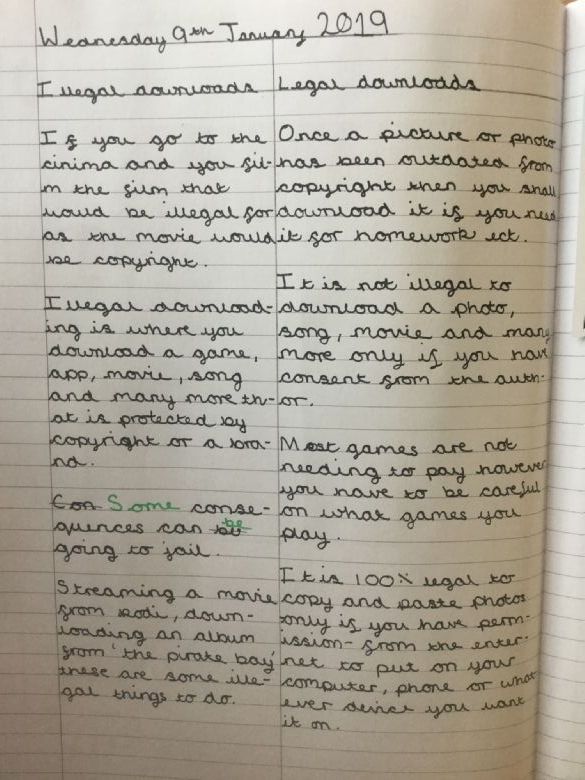 Wednesday 9th January 2019
Illegal downloads
If you go to the
cinima and you fil-
m the film that
would be illegal for
as the movie would
be copyright.
Illegal download-
ing is where you
download a game,
app, movie, song
and many more th-
at is protected by
copyright or a bra-
nd.
Con Some conse-
quences can be
going to jail.
Streaming a movie
from kodi, down-
loading an album
from 'the pirate bay'
these are some ille-
gal things to do.
Legal downloads
Once a picture or photo
has been outdated from
copyright then you shall
download it if you need
it for homework ect.
It is not illegal to
download a photo,
song, movie and many
more only if you have
consent from the auth-
or.
Most games are not
needing to pay however
you have to be careful
on what games you
play.
It is 100% legal to
copy and paste photos
only if you have perm-
ission- from the enter-
net to put on your
computer, phone or what
ever device you want
it on.